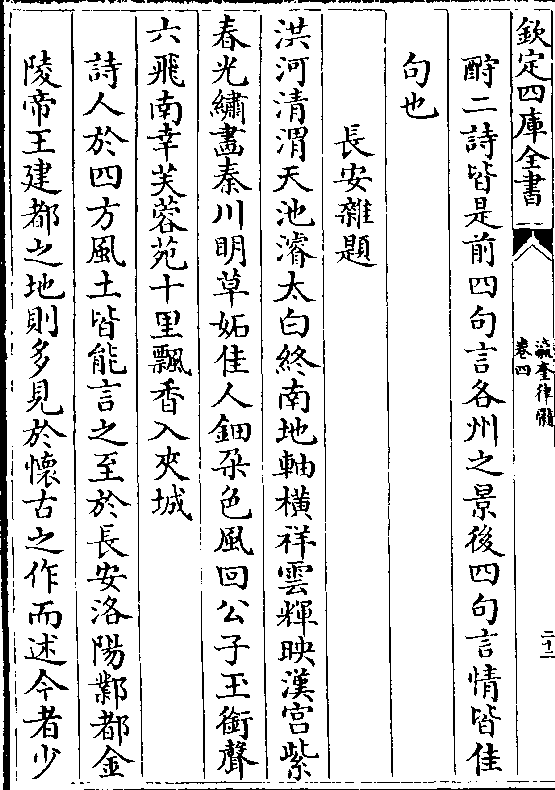 欽定四庫全書
瀛奎律髓
卷四
二十二
酧二詩皆是前四句言各州之景後四句言情皆佳
句也
長安雜題
洪河清渭天池濬太白終南地軸橫祥雲輝映漢宮紫
春光繡畫秦川明草妬佳人鈿朶色風回公子玉銜聲
六飛南幸芙蓉苑十里飄香入夾城
詩人於四方風土皆能言之至於長安洛陽鄴都金
陵帝王建都之地則多見於懷古之作而述今者少